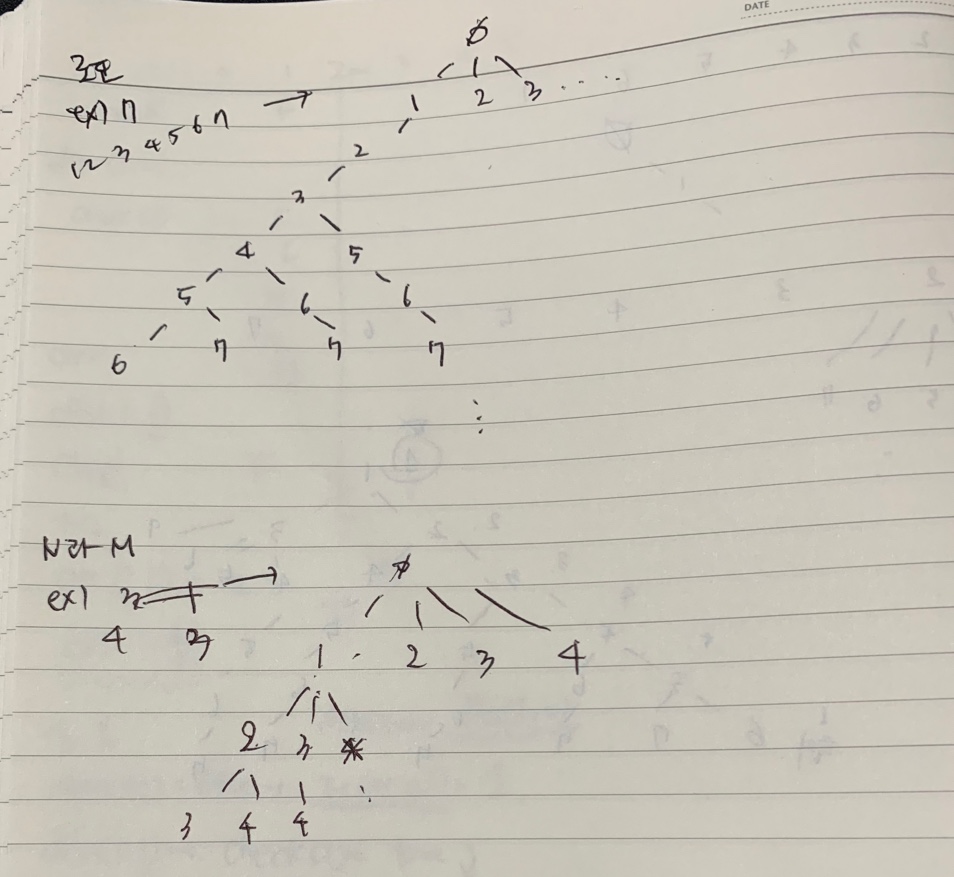 DATE
ϕ
로또
ex) 7
1 2 3 4 5 6 7
1 2 3 .....
2
3
4 5
5 6 6
6 7 7 7
⋮
N과 M
ex)
4 3
ϕ
1 . 2 3 4
2 3
3 4 4